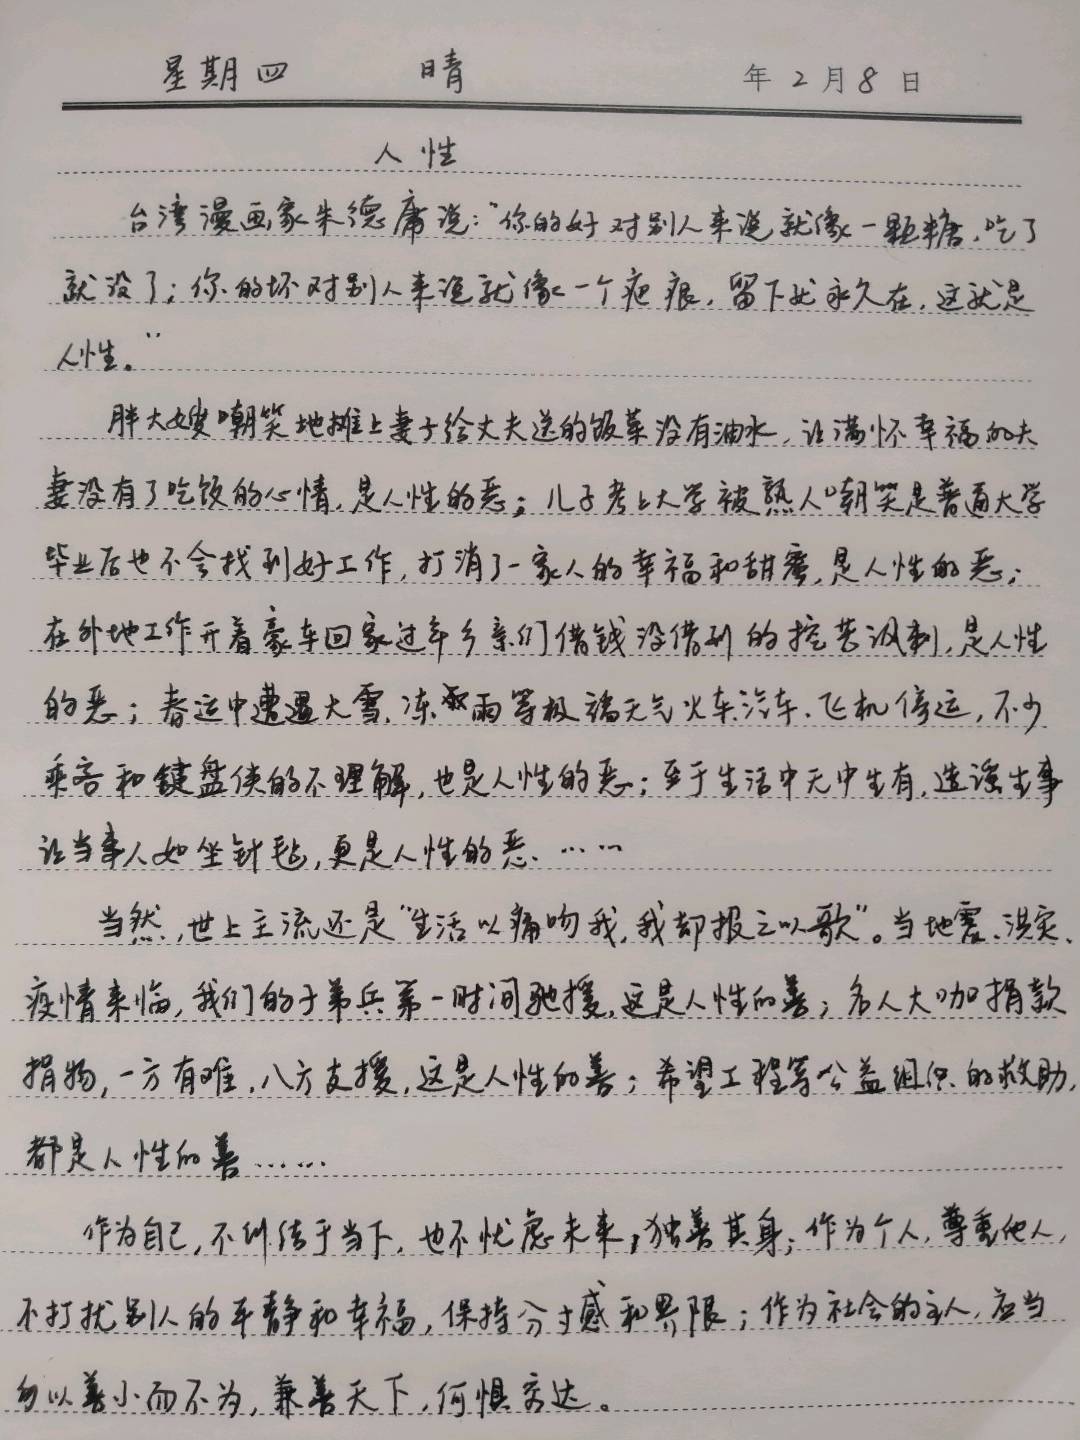 星期四 晴 年2月8日
人性
台湾漫画家朱德庸说:“你的好对别人来说就像一颗糖,吃了
就没了;你的坏对别人来说就像一个疤痕,留下就永久在,这就是
人性。”
胖大嫂嘲笑地摊上妻子给丈夫送的饭菜没有油水,让满怀幸福的夫
妻没有了吃饭的心情,是人性的恶;儿子考上大学被熟人嘲笑是普通大学
毕业后也不会找到好工作,打消了一家人的幸福和甜蜜,是人性的恶;
在外地工作开着豪车回家过年乡亲们借钱没借到的挖苦讽刺,是人性
的恶;春运中遭遇大雪、冻雨等极端天气火车、汽车、飞机停运,不少
乘客和键盘侠的不理解,也是人性的恶;至于生活中无中生有,造谣生事
让当事人如坐针毡,更是人性的恶……
当然,世上主流还是“生活以痛吻我,我却报之以歌”。当地震、洪灾、
疫情来临,我们的子弟兵第一时间驰援,这是人性的善;名人大咖捐款
捐物,一方有难,八方支援,这是人性的善;希望工程等公益组织的救助,
都是人性的善……
作为自己,不纠结于当下,也不忧虑未来,独善其身;作为个人,尊重他人,
不打扰别人的平静和幸福,保持分寸感和界限;作为社会的主人,应当
勿以善小而不为,兼善天下,何惧穷达。